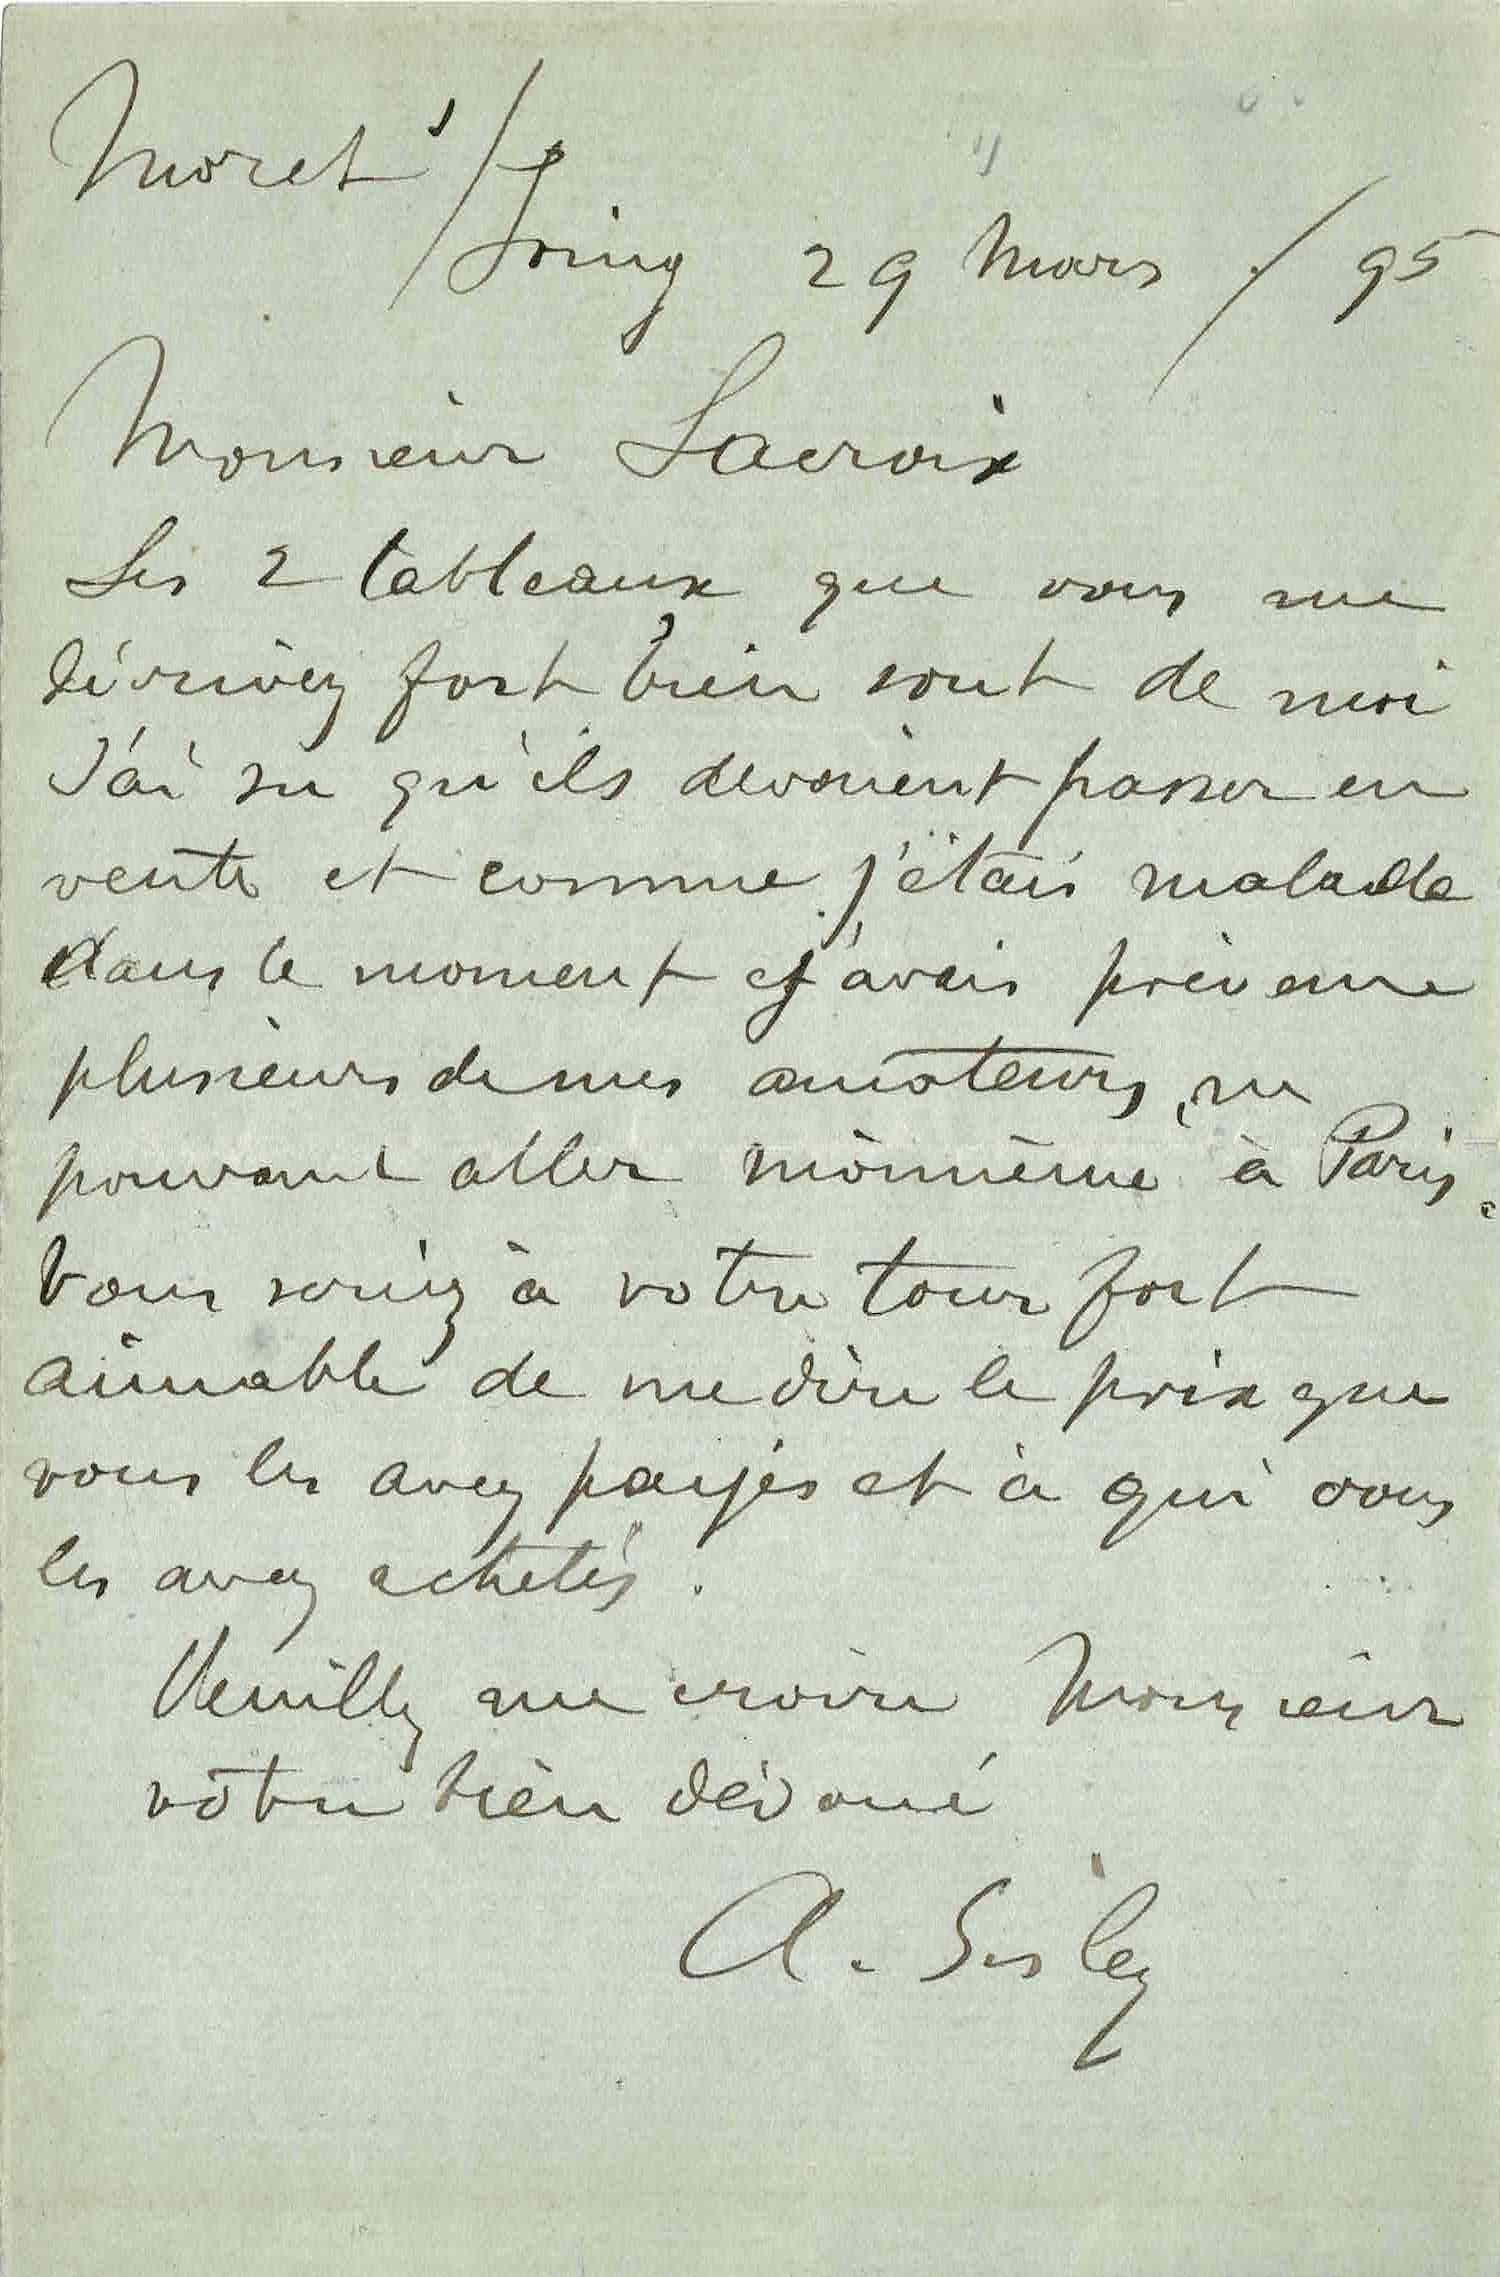 Moret s/
Loing 29 Mars / 95
Monsieur Lacroix
Les 2 tableaux que vous me
décrivez fort bien sont de moi
J'ai su qu'ils devaient passer en
vente et comme j'étais malade
dans le moment j'avais prévenu
plusieurs de mes amateurs, ne
pouvant aller moi même à Paris.
Vous seriez à votre tour fort
aimable de me dire le prix que
vous les avez payés et à qui vous
les avez achetés.
Veuillez me croire Monsieur
votre bien dévoué
A. Sisley